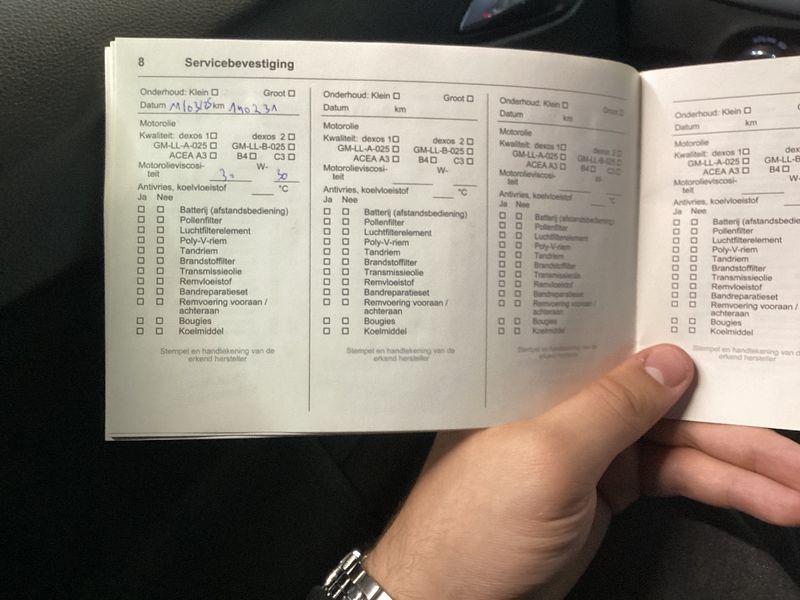 8 Servicebevestiging
Onderhoud: Klein ☐ Groot ☐
Datum km
Motorolie
Kwaliteit: dexos 1☐ dexos 2 ☐
GM-LL-A-025 ☐ GM-LL-B-025 ☐
ACEA A3 ☐ B4 ☐ C3 ☐
Motorolieviscosi- W-
teit 30 30
Antivries, koelvloeistof °C
Ja Nee
☐ ☐ Batterij (afstandsbediening)
☐ ☐ Pollenfilter
☐ ☐ Luchtfilterelement
☐ ☐ Poly-V-riem
☐ ☐ Tandriem
☐ ☐ Brandstoffilter
☐ ☐ Transmissieolie
☐ ☐ Remvloeistof
☐ ☐ Bandreparatieset
☐ ☐ Remvoering vooraan /
achteraan
☐ ☐ Bougies
☐ ☐ Koelmiddel
Stempel en handtekening van de
erkend hersteller
Onderhoud: Klein ☐ Groot ☐
Datum km
Motorolie
Kwaliteit: dexos 1☐ dexos 2 ☐
GM-LL-A-025 ☐ GM-LL-B-025 ☐
ACEA A3 ☐ B4 ☐ C3 ☐
Motorolieviscosi- W-
teit
Antivries, koelvloeistof °C
Ja Nee
☐ ☐ Batterij (afstandsbediening)
☐ ☐ Pollenfilter
☐ ☐ Luchtfilterelement
☐ ☐ Poly-V-riem
☐ ☐ Tandriem
☐ ☐ Brandstoffilter
☐ ☐ Transmissieolie
☐ ☐ Remvloeistof
☐ ☐ Bandreparatieset
☐ ☐ Remvoering vooraan /
achteraan
☐ ☐ Bougies
☐ ☐ Koelmiddel
Stempel en handtekening van de
erkend hersteller
Onderhoud: Klein ☐ Groot ☐
Datum km
Motorolie
Kwaliteit: dexos 1☐ dexos 2 ☐
GM-LL-A-025 ☐ GM-LL-B-025 ☐
ACEA A3 ☐ B4 ☐ C3 ☐
Motorolieviscosi- W-
teit
Antivries, koelvloeistof °C
Ja Nee
☐ ☐ Batterij (afstandsbediening)
☐ ☐ Pollenfilter
☐ ☐ Luchtfilterelement
☐ ☐ Poly-V-riem
☐ ☐ Tandriem
☐ ☐ Brandstoffilter
☐ ☐ Transmissieolie
☐ ☐ Remvloeistof
☐ ☐ Bandreparatieset
☐ ☐ Remvoering vooraan /
achteraan
☐ ☐ Bougies
☐ ☐ Koelmiddel
Stempel en handtekening van de
erkend hersteller
Onderhoud: Klein ☐
Datum km
Motorolie
Kwaliteit: dexos 1☐
GM-LL-A-025 ☐ GM-LL-B
ACEA A3 ☐ B4 ☐
Motorolieviscosi- W-
teit
Antivries, koelvloeistof
Ja Nee
☐ ☐ Batterij (afstandsbedie
☐ ☐ Pollenfilter
☐ ☐ Luchtfilterelement
☐ ☐ Poly-V-riem
☐ ☐ Tandriem
☐ ☐ Brandstoffilter
☐ ☐ Transmissieolie
☐ ☐ Remvloeistof
☐ ☐ Bandreparatieset
☐ ☐ Remvoering vooraan /
achteraan
☐ ☐ Bougies
☐ ☐ Koelmiddel
Stempel en handtekening van de
erkend hersteller